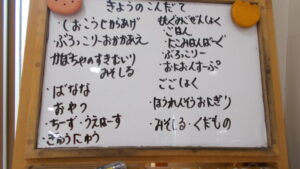 きょうのこんだて
・しおこうじからあげ
・ぶろっこりーおかかあえ
かぼちゃのすきむいり
みそしる
・ばなな
おやつ
・ちーず・うえはーす
・ぎゅうにゅう
・ごはん
・たこみはんばーぐ
・ぶろっこりー
・おにおんすーぷ
ごごしょく
・ほうれんそうおにぎり
・みそしる・くだもの